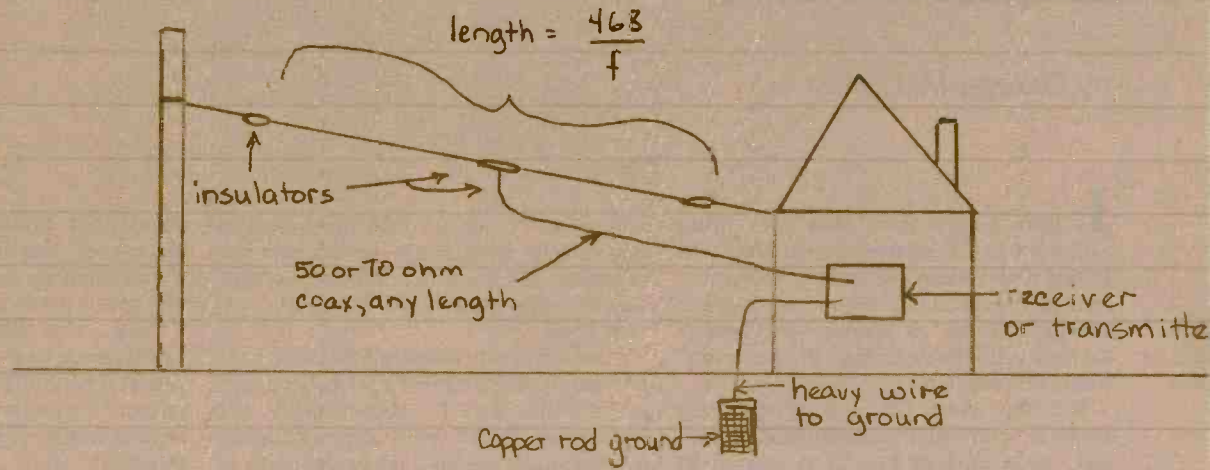 length = 468
f
insulators
50 or 70 ohm
coax, any length
receiver
or transmitte
heavy wire
to ground
Copper rod ground